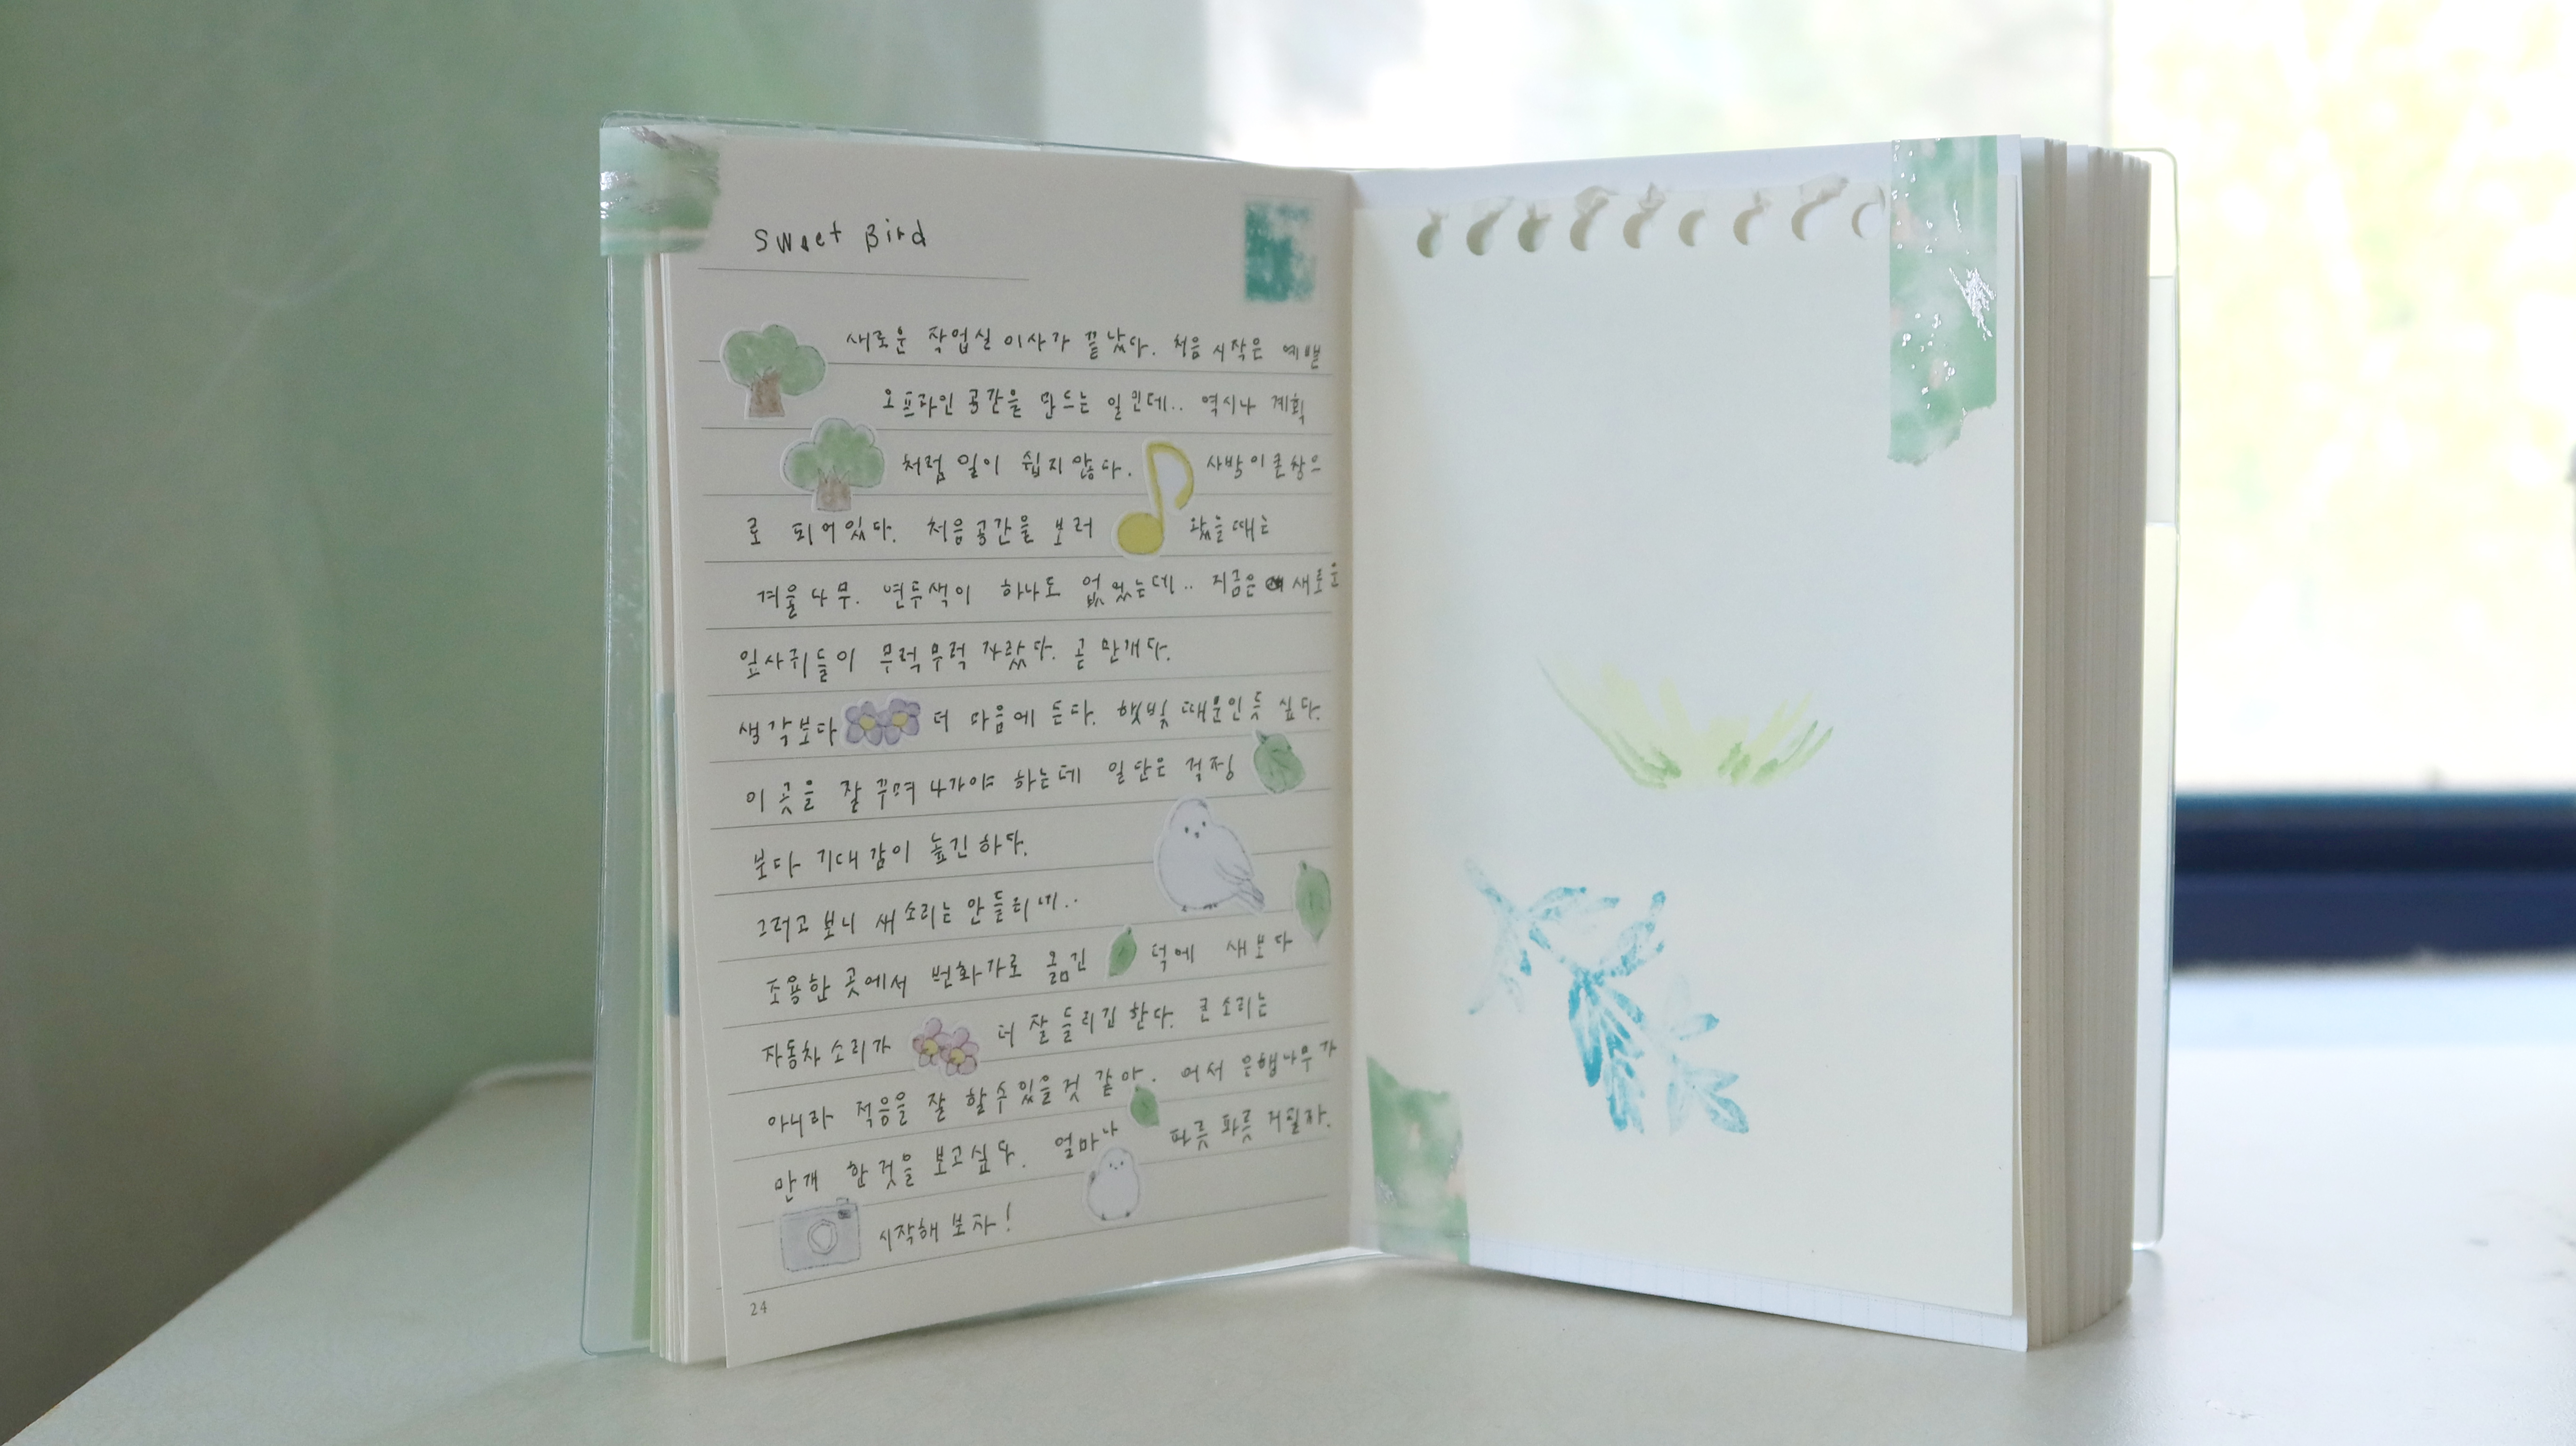 sweet Bird
새로운 작업실 이사가 끝났다. 처음 시작은 예쁜
오프라인 공간을 만드는 일인데.. 역시나 계획
처럼 일이 쉽지 않다. 사방이 큰 창으
로 되어있다. 처음 공간을 보러 왔을때는
겨울나무. 연두색이 하나도 없었는데.. 지금은 새로운
잎사귀들이 무럭무럭 자랐다. 곧 만개다.
생각보다 더 마음에 든다. 햇빛 때문인듯 싶다.
이 곳을 잘 꾸며 나가야 하는데 일단은 걱정
보다 기대감이 높긴하다.
그러고 보니 새소리는 안들리네..
조용한 곳에서 번화가로 옮긴 덕에 새보다
자동차 소리가 더 잘 들리긴 한다. 큰 소리는
아니라 적응을 잘 할 수 있을것 같아. 어서 은행나무가
만개 한 것을 보고싶다. 얼마나 파릇 파릇 거릴까.
시작해 보자!
24